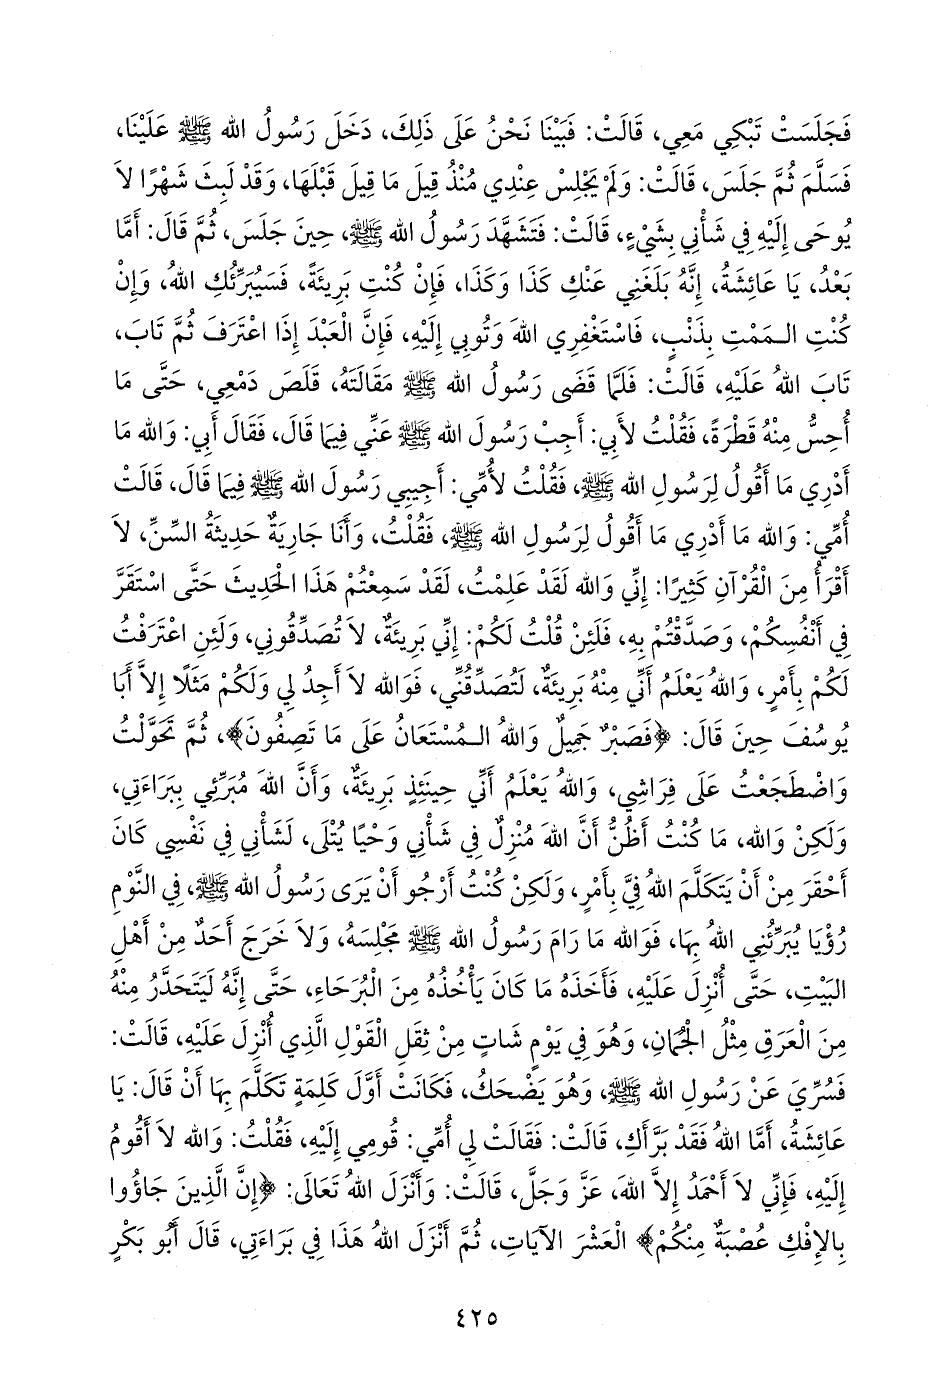 فَجَلَسَتْ تَبْكِي مَعِي، قَالَتْ: فَبَيْنَا نَحْنُ عَلَى ذَلِكَ، دَخَلَ رَسُولُ الله ﷺ عَلَيْنَا،
فَسَلَّمَ ثُمَّ جَلَسَ، قَالَتْ: وَلَمْ يَجْلِسْ عِنْدِي مُنْذُ قِيلَ مَا قِيلَ قَبْلَهَا، وَقَدْ لَبِثَ شَهْرًا لاَ
يُوحَى إِلَيْهِ فِي شَأْنِي بِشَيْءٍ، قَالَتْ: فَتَشَهَّدَ رَسُولُ الله ﷺ، حِينَ جَلَسَ، ثُمَّ قَالَ: أَمَّا
بَعْدُ، يَا عَائِشَةُ، إِنَّهُ بَلَغَنِي عَنْكِ كَذَا وَكَذَا، فَإِنْ كُنْتِ بَرِيئَةً، فَسَيُبَرِّئُكِ اللهُ، وَإِنْ
كُنْتِ الـمَمْتِ بِذَنْبٍ، فَاسْتَغْفِرِي اللهَ وَتُوبِي إِلَيْهِ، فَإِنَّ الْعَبْدَ إِذَا اعْتَرَفَ ثُمَّ تَابَ،
تَابَ اللهُ عَلَيْهِ، قَالَتْ: فَلَمَّا قَضَى رَسُولُ الله ﷺ مَقَالَتَهُ، قَلَصَ دَمْعِي، حَتَّى مَا
أُحِسُّ مِنْهُ قَطْرَةً، فَقُلْتُ لأَبِي: أَجِبْ رَسُولَ الله ﷺ عَنِّي فِيمَا قَالَ، فَقَالَ أَبِي: وَالله مَا
أَدْرِي مَا أَقُولُ لِرَسُولِ الله ﷺ، فَقُلْتُ لأُمِّي: أَجِيبِي رَسُولَ الله ﷺ فِيمَا قَالَ، قَالَتْ
أُمِّي: وَالله مَا أَدْرِي مَا أَقُولُ لِرَسُولِ الله ﷺ، فَقُلْتُ، وَأَنَا جَارِيَةٌ حَدِيثَةُ السِّنِّ، لاَ
أَقْرَأُ مِنَ الْقُرْآنِ كَثِيرًا: إِنِّي وَالله لَقَدْ عَلِمْتُ، لَقَدْ سَمِعْتُمْ هَذَا الْحَدِيثَ حَتَّى اسْتَقَرَّ
فِي أَنْفُسِكُمْ، وَصَدَّقْتُمْ بِهِ، فَلَئِنْ قُلْتُ لَكُمْ: إِنِّي بَرِيئَةٌ، لاَ تُصَدِّقُونِي، وَلَئِنِ اعْتَرَفْتُ
لَكُمْ بِأَمْرٍ، وَاللهُ يَعْلَمُ أَنِّي مِنْهُ بَرِيئَةٌ، لَتُصَدِّقُنِّي، فَوَالله لاَ أَجِدُ لِي وَلَكُمْ مَثَلًا إِلاَّ أَبَا
يُوسُفَ حِينَ قَالَ: ﴿فَصَبْرٌ جَمِيلٌ وَاللهُ الـمُسْتَعَانُ عَلَى مَا تَصِفُونَ﴾، ثُمَّ تَحَوَّلْتُ
وَاضْطَجَعْتُ عَلَى فِرَاشِي، وَاللهُ يَعْلَمُ أَنِّي حِينَئِذٍ بَرِيئَةٌ، وَأَنَّ اللهَ مُبَرِّئِي بِبَرَاءَتِي،
وَلَكِنْ وَالله، مَا كُنْتُ أَظُنُّ أَنَّ اللهَ مُنْزِلٌ فِي شَأْنِي وَحْيًا يُتْلَى، لَشَأْنِي فِي نَفْسِي كَانَ
أَحْقَرَ مِنْ أَنْ يَتَكَلَّمَ اللهُ فِيَّ بِأَمْرٍ، وَلَكِنْ كُنْتُ أَرْجُو أَنْ يَرَى رَسُولُ الله ﷺ، فِي النَّوْمِ
رُؤْيَا يُبَرِّئُنِي اللهُ بِهَا، فَوَالله مَا رَامَ رَسُولُ الله ﷺ مَجْلِسَهُ، وَلاَ خَرَجَ أَحَدٌ مِنْ أَهْلِ
البَيْتِ، حَتَّى أُنْزِلَ عَلَيْهِ، فَأَخَذَهُ مَا كَانَ يَأْخُذُهُ مِنَ الْبُرَحَاءِ، حَتَّى إِنَّهُ لَيَتَحَدَّرُ مِنْهُ
مِنَ الْعَرَقِ مِثْلُ الْجُمَانِ، وَهُوَ فِي يَوْمٍ شَاتٍ مِنْ ثِقَلِ الْقَوْلِ الَّذِي أُنْزِلَ عَلَيْهِ، قَالَتْ:
فَسُرِّيَ عَنْ رَسُولِ الله ﷺ، وَهُوَ يَضْحَكُ، فَكَانَتْ أَوَّلَ كَلِمَةٍ تَكَلَّمَ بِهَا أَنْ قَالَ: يَا
عَائِشَةُ، أَمَّا اللهُ فَقَدْ بَرَّأَكِ، قَالَتْ: فَقَالَتْ لِي أُمِّي: قُومِي إِلَيْهِ، فَقُلْتُ: وَالله لاَ أَقُومُ
إِلَيْهِ، فَإِنِّي لاَ أَحْمَدُ إِلاَّ اللهَ، عَزَّ وَجَلَّ، قَالَتْ: وَأَنْزَلَ اللهُ تَعَالَى: ﴿إِنَّ الَّذِينَ جَاؤُوا
بِالإِفْكِ عُصْبَةٌ مِنْكُمْ﴾ الْعَشْرَ الآيَاتِ، ثُمَّ أَنْزَلَ اللهُ هَذَا فِي بَرَاءَتِي، قَالَ أَبُو بَكْرٍ
٤٢٥